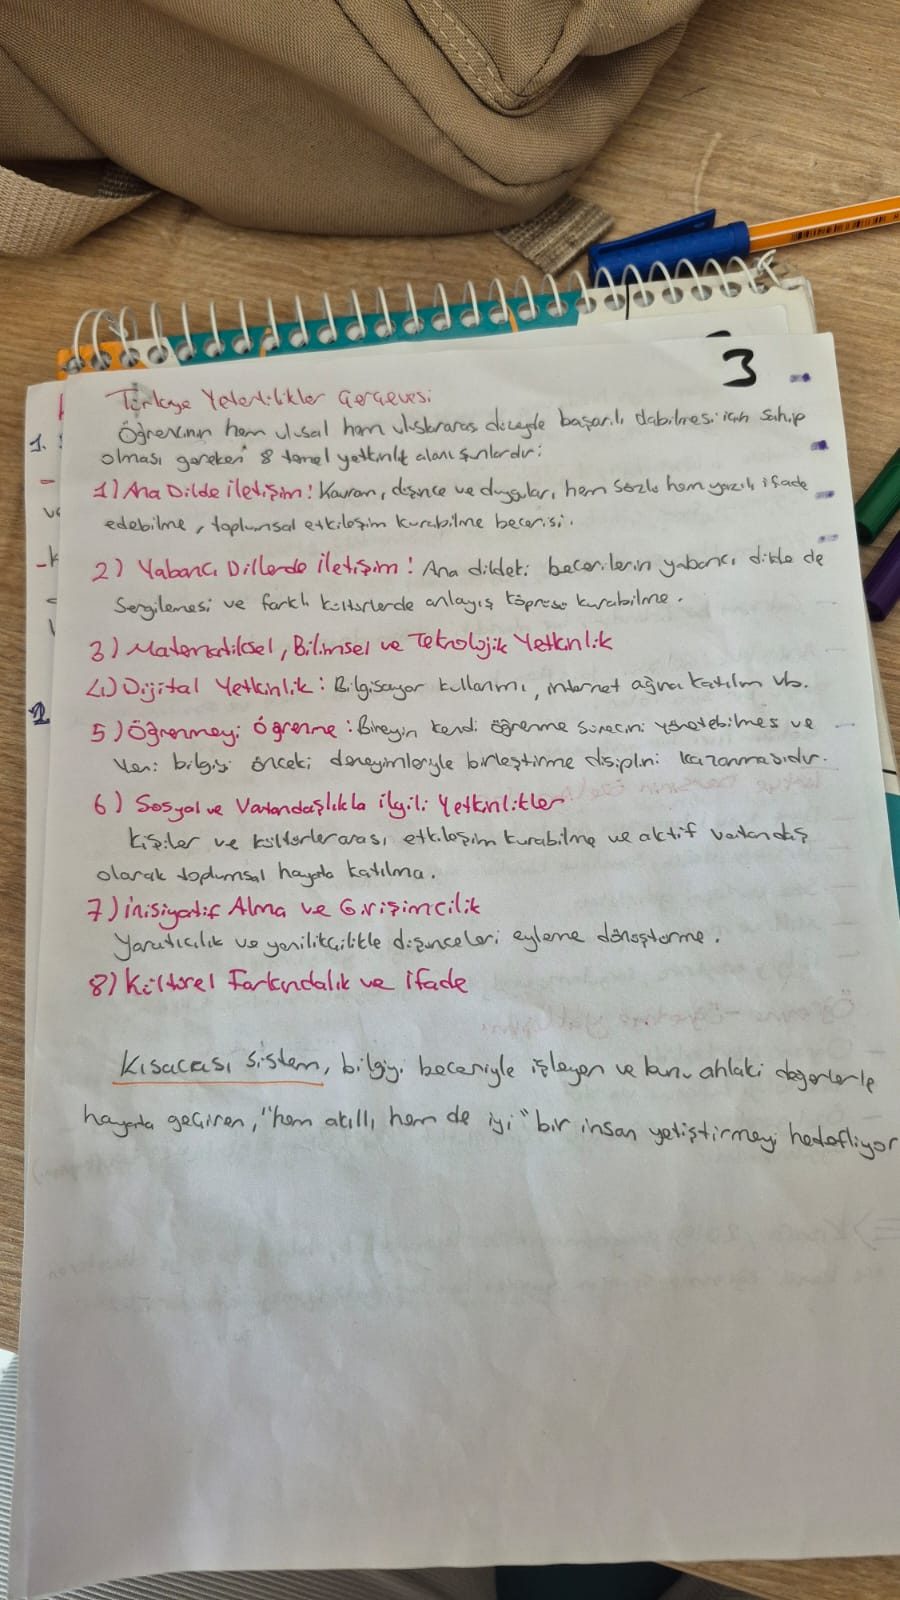 3
Türkiye Yeterlilikler Çerçevesi
Öğrencinin hem ulusal hem uluslararası düzeyde başarılı olabilmesi için sahip
olması gereken 8 temel yetkinlik alanı şunlardır:
1) Ana Dilde İletişim: Kavram, düşünce ve duyguları, hem sözlü hem yazılı ifade
edebilme, toplumsal etkileşim kurabilme becerisi.
2) Yabancı Dillerde İletişim: Ana dildeki becerilerin yabancı dilde de
Sergilemesi ve farklı kültürlerde anlayış köprüsü kurabilme.
3) Matematiksel, Bilimsel ve Teknolojik Yetkinlik
4) Dijital Yetkinlik: Bilgisayar kullanımı, internet ağına katılım vb.
5) Öğrenmeyi Öğrenme: Bireyin kendi öğrenme sürecini yönetebilmesi ve
Yeni bilgiyi önceki deneyimleriyle birleştirme disiplini kazanmasıdır.
6) Sosyal ve Vatandaşlıkla ilgili Yetkinlikler
Kişiler ve kültürlerarası etkileşim kurabilme ve aktif vatandaş
olarak toplumsal hayata katılma.
7) İnisiyatif Alma ve Girişimcilik
Yaratıcılık ve yenilikçilikle düşünceleri eyleme dönüştürme.
8) Kültürel Farkındalık ve İfade
Kısacası sistem, bilgiyi beceriyle işleyen ve bunu ahlaki değerlerle
hayata geçiren, "hem akıllı hem de iyi" bir insan yetiştirmeyi hedefliyor